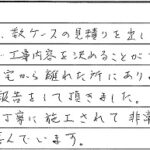 、数ケースの見積りを出し
工事内容を決めることが
宅から離れた所にあり
報告をして頂きました。
丁寧に施工されて 非常
んでいます。